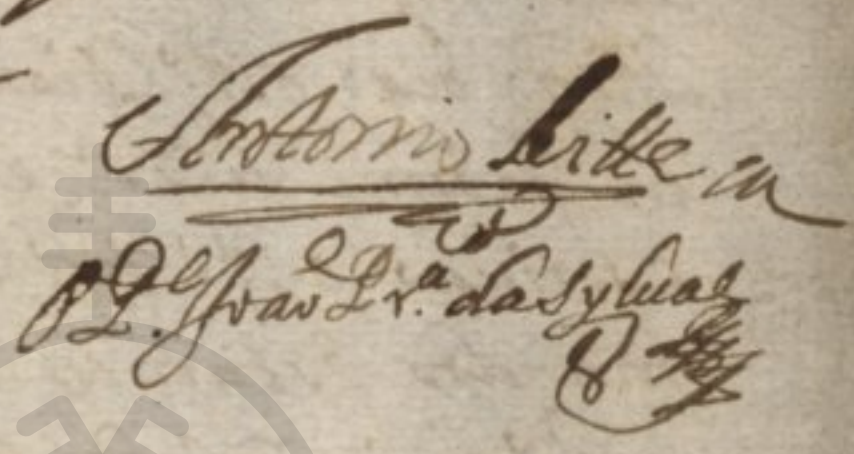 Antonio Leitte
O P.e João Pr.a da Sylua